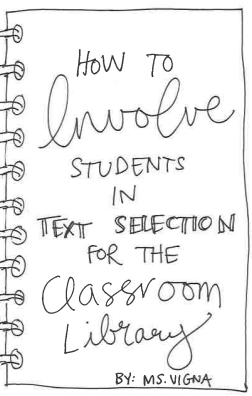 HOW TO
Involve
STUDENTS
IN
TEXT SELECTION
FOR THE
Classroom
Library
BY: MS. VIGNA